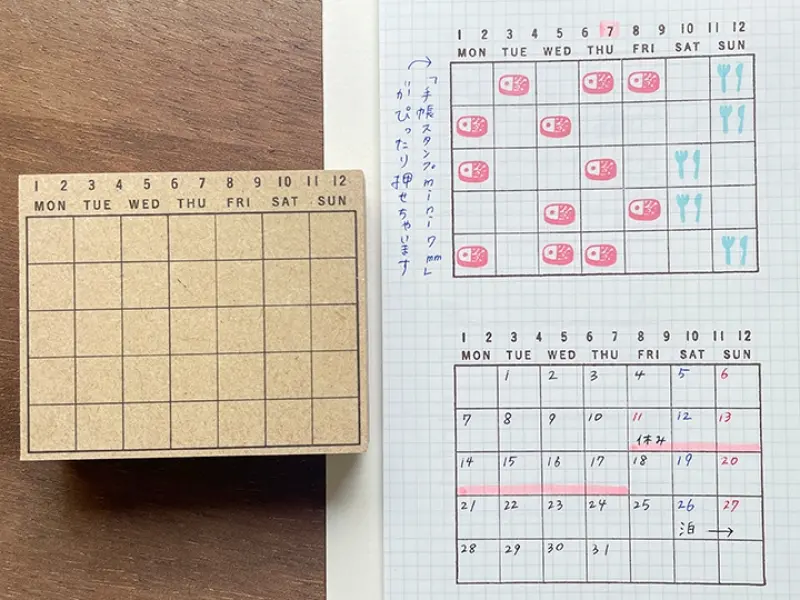 1 2 3 4 5 6 7 8 9 10 11 12
MON TUE WED THU FRI SAT SUN
「手帳スタンプmini7mm」
がぴったり押せちゃいます
1 2 3 4 5 6 7 8 9 10 11 12
MON TUE WED THU FRI SAT SUN
1 2 3 4 5 6 7 8 9 10 11 12
MON TUE WED THU FRI SAT SUN
1 2 3 4 5 6
7 8 9 10 11 12 13
休み
14 15 16 17 18 19 20
21 22 23 24 25 26 27
泊 →
28 29 30 31